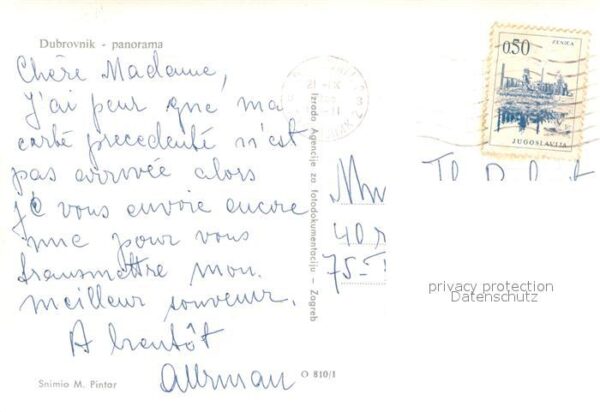 Dubrovnik - panorama
Chère Madame,
J'ai peur que ma
carte precedente n'est
pas arrivée alors
je vous envoie encore
une pour vous
transmettre mon
meilleur souvenir.
A bientôt
O 810/1
Snimio M. Pintar
Izrada Agencije za fotodokumentaciju — Zagreb
0.50
ZENICA
JUGOSLAVIJA
40
75-
privacy protection
Datenschutz